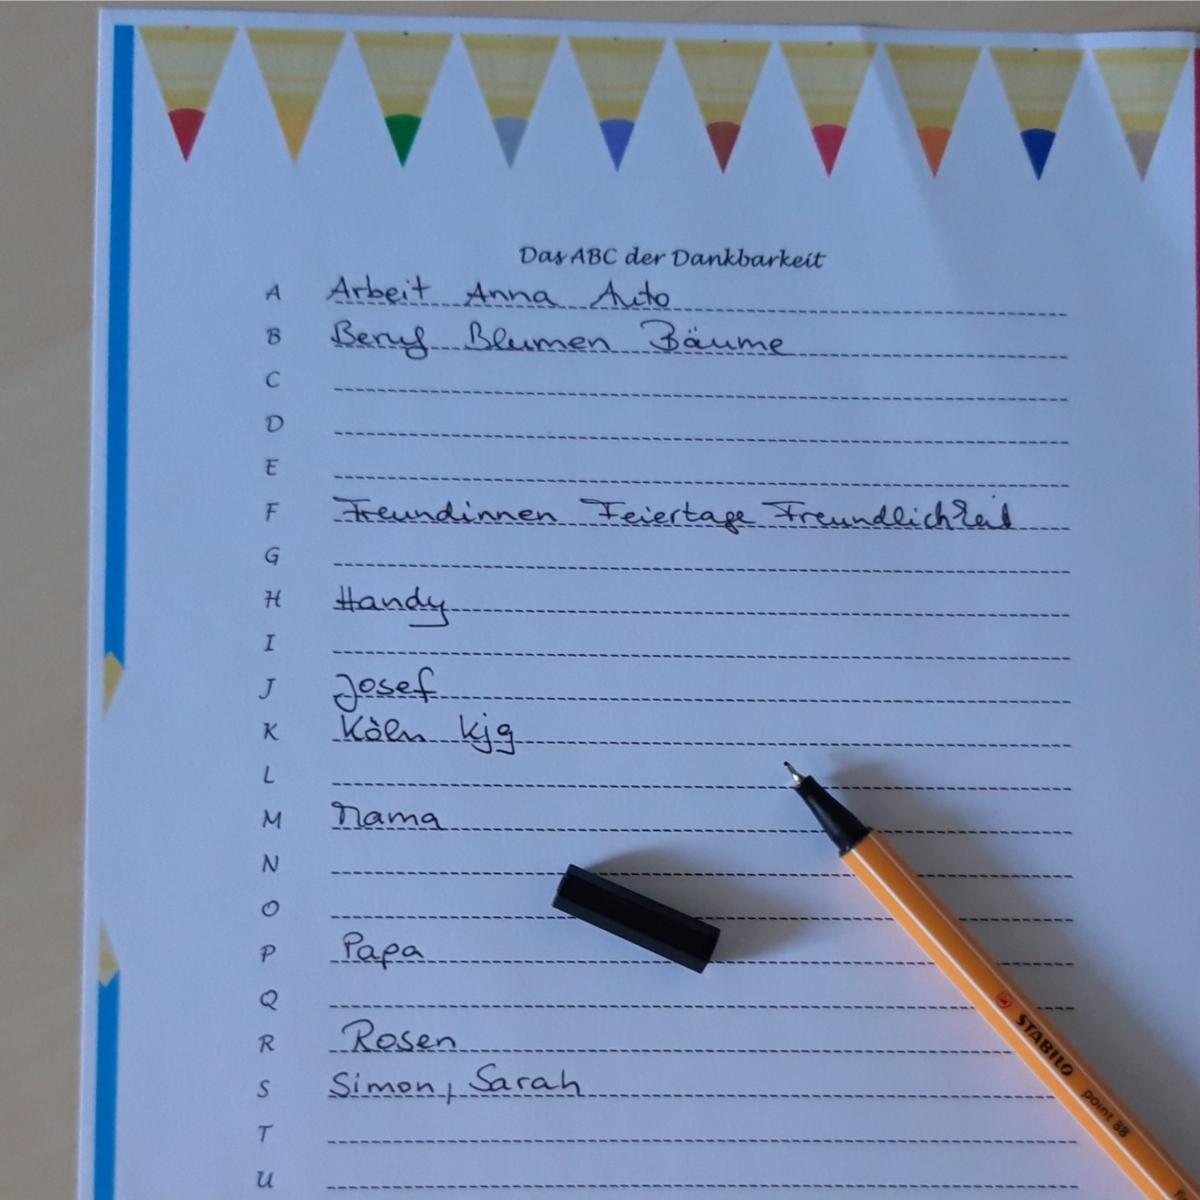 Das ABC der Dankbarkeit
A Arbeit Anna Auto
B Beruf Blumen Bäume
C
D
E
F Freundinnen Feiertage Freundlichkeit
G
H Handy
I
J Josef
K Köln Kjg
L
M Mama
N
O
P Papa
Q
R Rosen
S Simon, Sarah
T
U
STABILO point 88